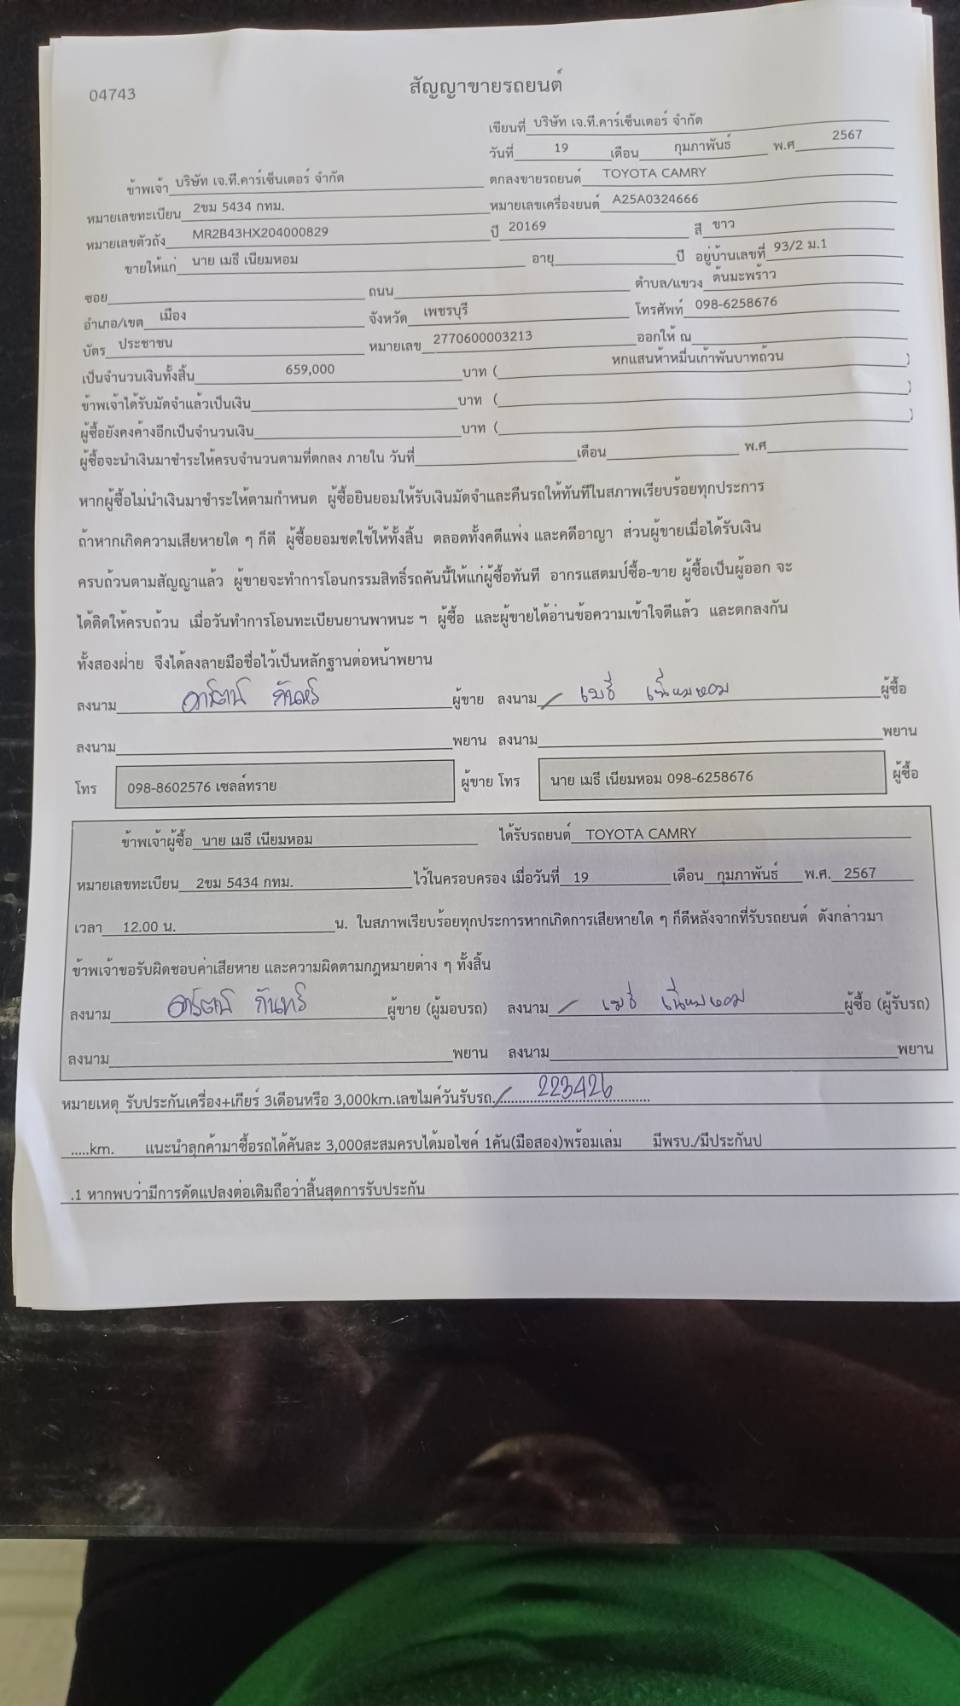 04743
สัญญาขายรถยนต์
เขียนที่ บริษัท เจ.ที.คาร์เซ็นเตอร์ จำกัด
วันที่ 19 เดือน กุมภาพันธ์ พ.ศ 2567
ข้าพเจ้า บริษัท เจ.ที.คาร์เซ็นเตอร์ จำกัด ตกลงขายรถยนต์ TOYOTA CAMRY
หมายเลขทะเบียน 2ขม 5434 กทม. หมายเลขเครื่องยนต์ A25A0324666
หมายเลขตัวถัง MR2B43HX204000829 ปี 20169 สี ขาว
ขายให้แก่ นาย เมธี เนียมหอม อายุ ปี อยู่บ้านเลขที่ 93/2 ม.1
ซอย ถนน ตำบล/แขวง ต้นมะพร้าว
อำเภอ/เขต เมือง จังหวัด เพชรบุรี โทรศัพท์ 098-6258676
บัตร ประชาชน หมายเลข 2770600003213 ออกให้ ณ
เป็นจำนวนเงินทั้งสิ้น 659,000 บาท ( หกแสนห้าหมื่นเก้าพันบาทถ้วน )
ข้าพเจ้าได้รับมัดจำแล้วเป็นเงิน บาท ( )
ผู้ซื้อยังคงค้างอีกเป็นจำนวนเงิน บาท ( )
ผู้ซื้อจะนำเงินมาชำระให้ครบจำนวนตามที่ตกลง ภายใน วันที่ เดือน พ.ศ
หากผู้ซื้อไม่นำเงินมาชำระให้ตามกำหนด ผู้ซื้อยินยอมให้รับเงินมัดจำและคืนรถให้ทันทีในสภาพเรียบร้อยทุกประการ
ถ้าหากเกิดความเสียหายใด ๆ ก็ดี ผู้ซื้อยอมชดใช้ให้ทั้งสิ้น ตลอดทั้งคดีแพ่ง และคดีอาญา ส่วนผู้ขายเมื่อได้รับเงิน
ครบถ้วนตามสัญญาแล้ว ผู้ขายจะทำการโอนกรรมสิทธิ์รถคันนี้ให้แก่ผู้ซื้อทันที อากรแสตมป์ซื้อ-ขาย ผู้ซื้อเป็นผู้ออก จะ
ได้ติดให้ครบถ้วน เมื่อวันทำการโอนทะเบียนยานพาหนะ ฯ ผู้ซื้อ และผู้ขายได้อ่านข้อความเข้าใจดีแล้ว และตกลงกัน
ทั้งสองฝ่าย จึงได้ลงลายมือชื่อไว้เป็นหลักฐานต่อหน้าพยาน
ลงนาม ผู้ขาย ลงนาม เมธี เนียมหอม ผู้ซื้อ
ลงนาม พยาน ลงนาม พยาน
โทร 098-8602576 เซลล์ทราย ผู้ขาย โทร นาย เมธี เนียมหอม 098-6258676 ผู้ซื้อ
ข้าพเจ้าผู้ซื้อ นาย เมธี เนียมหอม ได้รับรถยนต์ TOYOTA CAMRY
หมายเลขทะเบียน 2ขม 5434 กทม. ไว้ในครอบครอง เมื่อวันที่ 19 เดือน กุมภาพันธ์ พ.ศ. 2567
เวลา 12.00 น. น. ในสภาพเรียบร้อยทุกประการหากเกิดการเสียหายใด ๆ ก็ดีหลังจากที่รับรถยนต์ ดังกล่าวมา
ข้าพเจ้าขอรับผิดชอบค่าเสียหาย และความผิดตามกฎหมายต่าง ๆ ทั้งสิ้น
ลงนาม ผู้ขาย (ผู้มอบรถ) ลงนาม เมธี เนียมหอม ผู้ซื้อ (ผู้รับรถ)
ลงนาม พยาน ลงนาม พยาน
หมายเหตุ รับประกันเครื่อง+เกียร์ 3เดือนหรือ 3,000km.เลขไมค์วันรับรถ 223426
.....km. แนะนำลูกค้ามาซื้อรถได้คันละ 3,000สะสมครบได้มอไซค์ 1คัน(มือสอง)พร้อมเล่ม มีพรบ./มีประกันป
.1 หากพบว่ามีการดัดแปลงต่อเติมถือว่าสิ้นสุดการรับประกัน